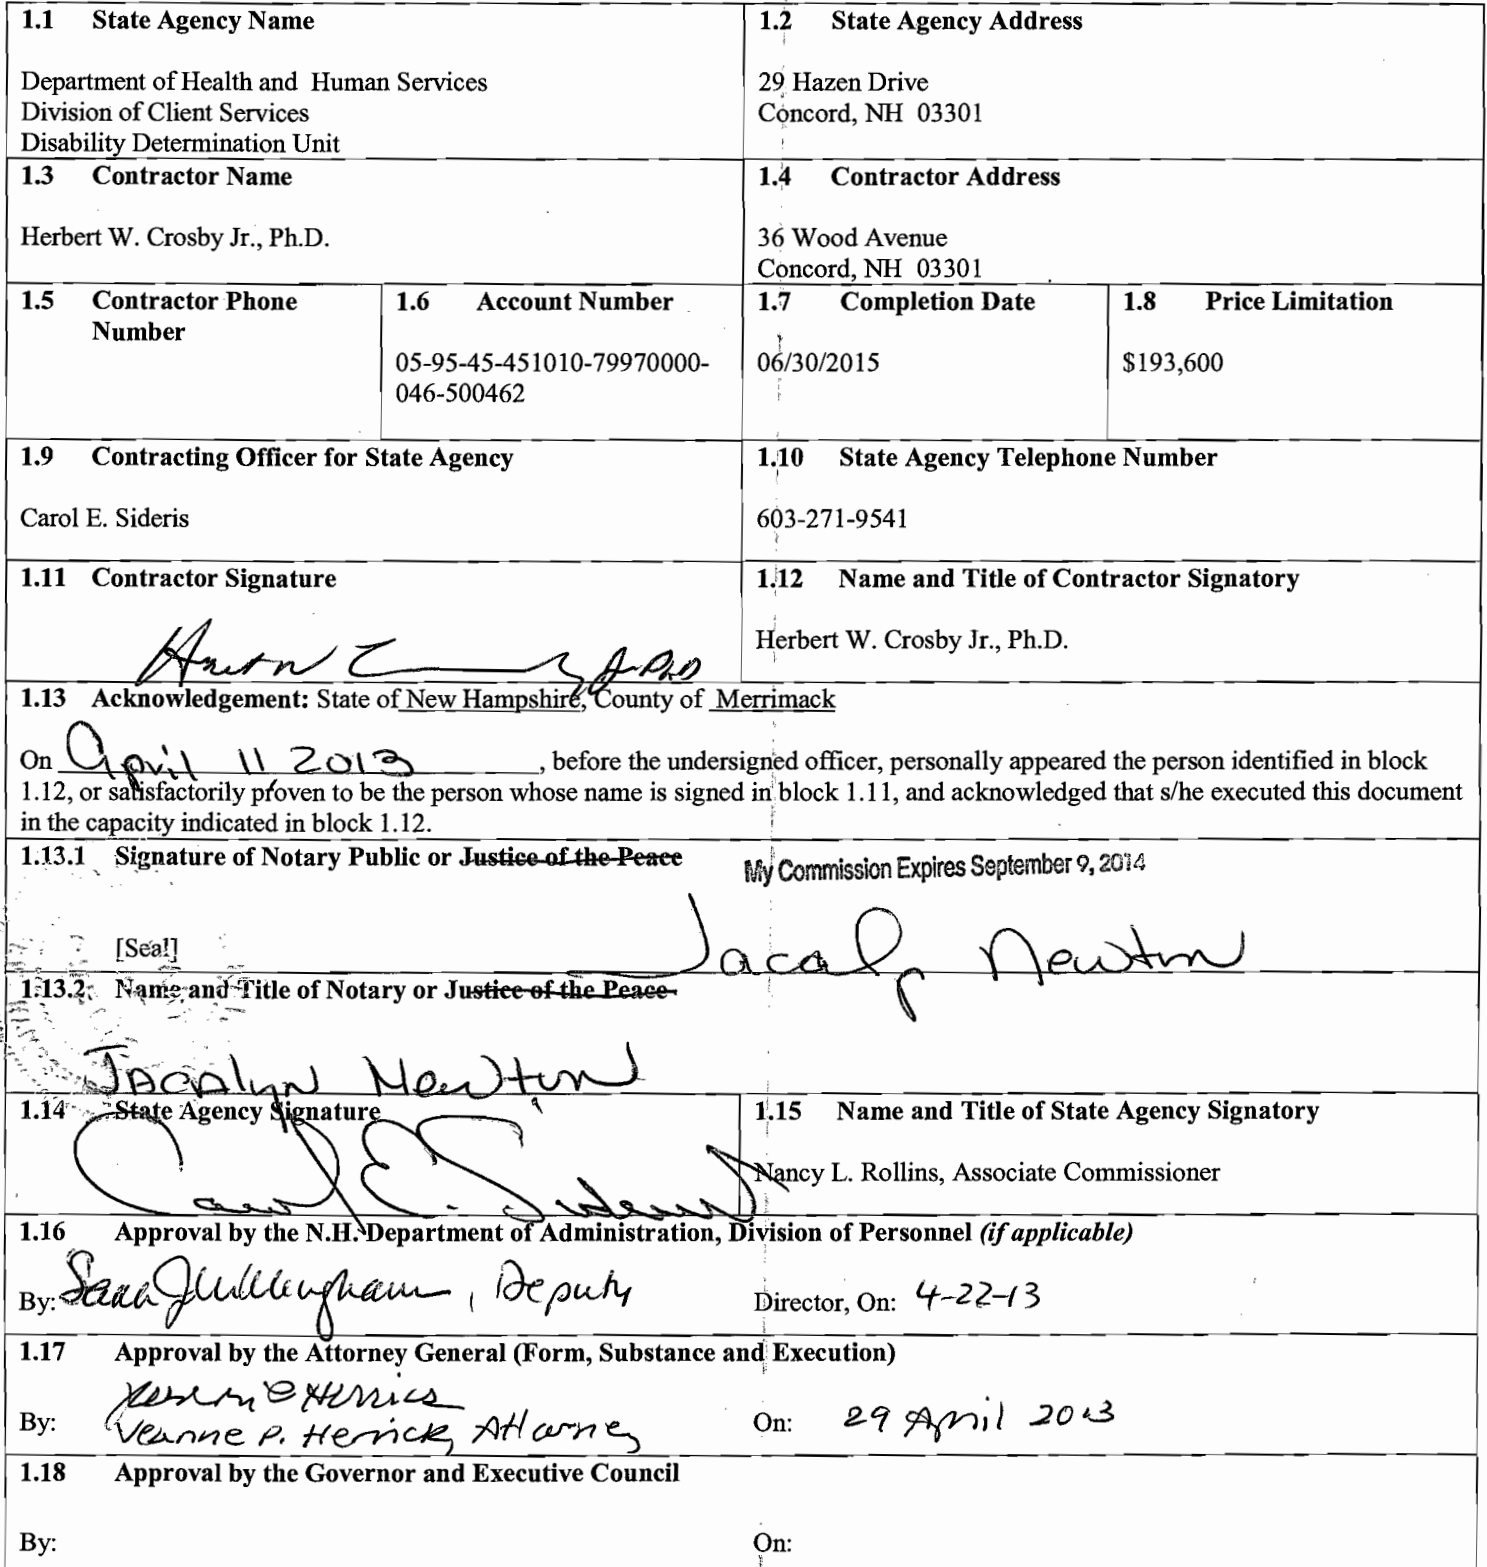 1.1 State Agency Name
Department of Health and Human Services
Division of Client Services
Disability Determination Unit
1.2 State Agency Address
29 Hazen Drive
Concord, NH 03301
1.3 Contractor Name
Herbert W. Crosby Jr., Ph.D.
1.4 Contractor Address
36 Wood Avenue
Concord, NH 03301
1.5 Contractor Phone
Number
1.6 Account Number
05-95-45-451010-79970000-
046-500462
1.7 Completion Date
06/30/2015
1.8 Price Limitation
$193,600
1.9 Contracting Officer for State Agency
Carol E. Sideris
1.10 State Agency Telephone Number
603-271-9541
1.11 Contractor Signature
1.12 Name and Title of Contractor Signatory
Herbert W. Crosby Jr., Ph.D.
1.13 Acknowledgement: State of New Hampshire, County of Merrimack
On April 11 2013, before the undersigned officer, personally appeared the person identified in block
1.12, or satisfactorily proven to be the person whose name is signed in block 1.11, and acknowledged that s/he executed this document
in the capacity indicated in block 1.12.
1.13.1 Signature of Notary Public or Justice of the Peace
My Commission Expires September 9, 2014
[Seal]
Jacalyn Newton
1.13.2 Name and Title of Notary or Justice of the Peace
Jacalyn Newton
1.14 State Agency Signature
Carol E. Sideris
1.15 Name and Title of State Agency Signatory
Nancy L. Rollins, Associate Commissioner
1.16 Approval by the N.H. Department of Administration, Division of Personnel (if applicable)
By: Sara J Willingham, Deputy
Director, On: 4-22-13
1.17 Approval by the Attorney General (Form, Substance and Execution)
By: Jeanne P. Herrick, Attorney
On: 29 April 2013
1.18 Approval by the Governor and Executive Council
By:
On: